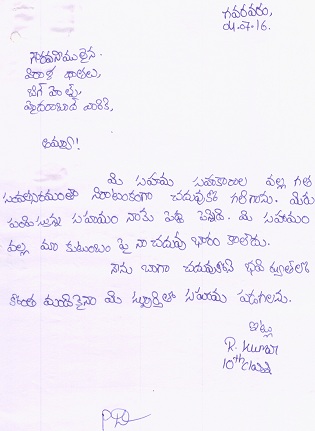 గవరవరం,
04.07.16.
గౌరవనీయులైన
విరాళ దాతలు,
బిగ్ హెల్ప్,
హైదరాబాద్ వారికి,
అయ్యా!
మీ సహాయ సహకారాల వల్ల గత
సంవత్సరమంతా నిరాటంకంగా చదువుకో గలిగాను. మీరు
పంపిస్తున్న సహాయం నాకు పెద్ద పెన్నిధి. మీ సహాయం
వల్ల మా కుటుంబం పై నా చదువు భారం కాలేదు.
నేను బాగా చదువుకొని భవిష్యత్‌లో
కొంత మందికైనా మీ స్ఫూర్తితో సహాయ పడగలను.
ఇట్లు
R. Kumar
10th class